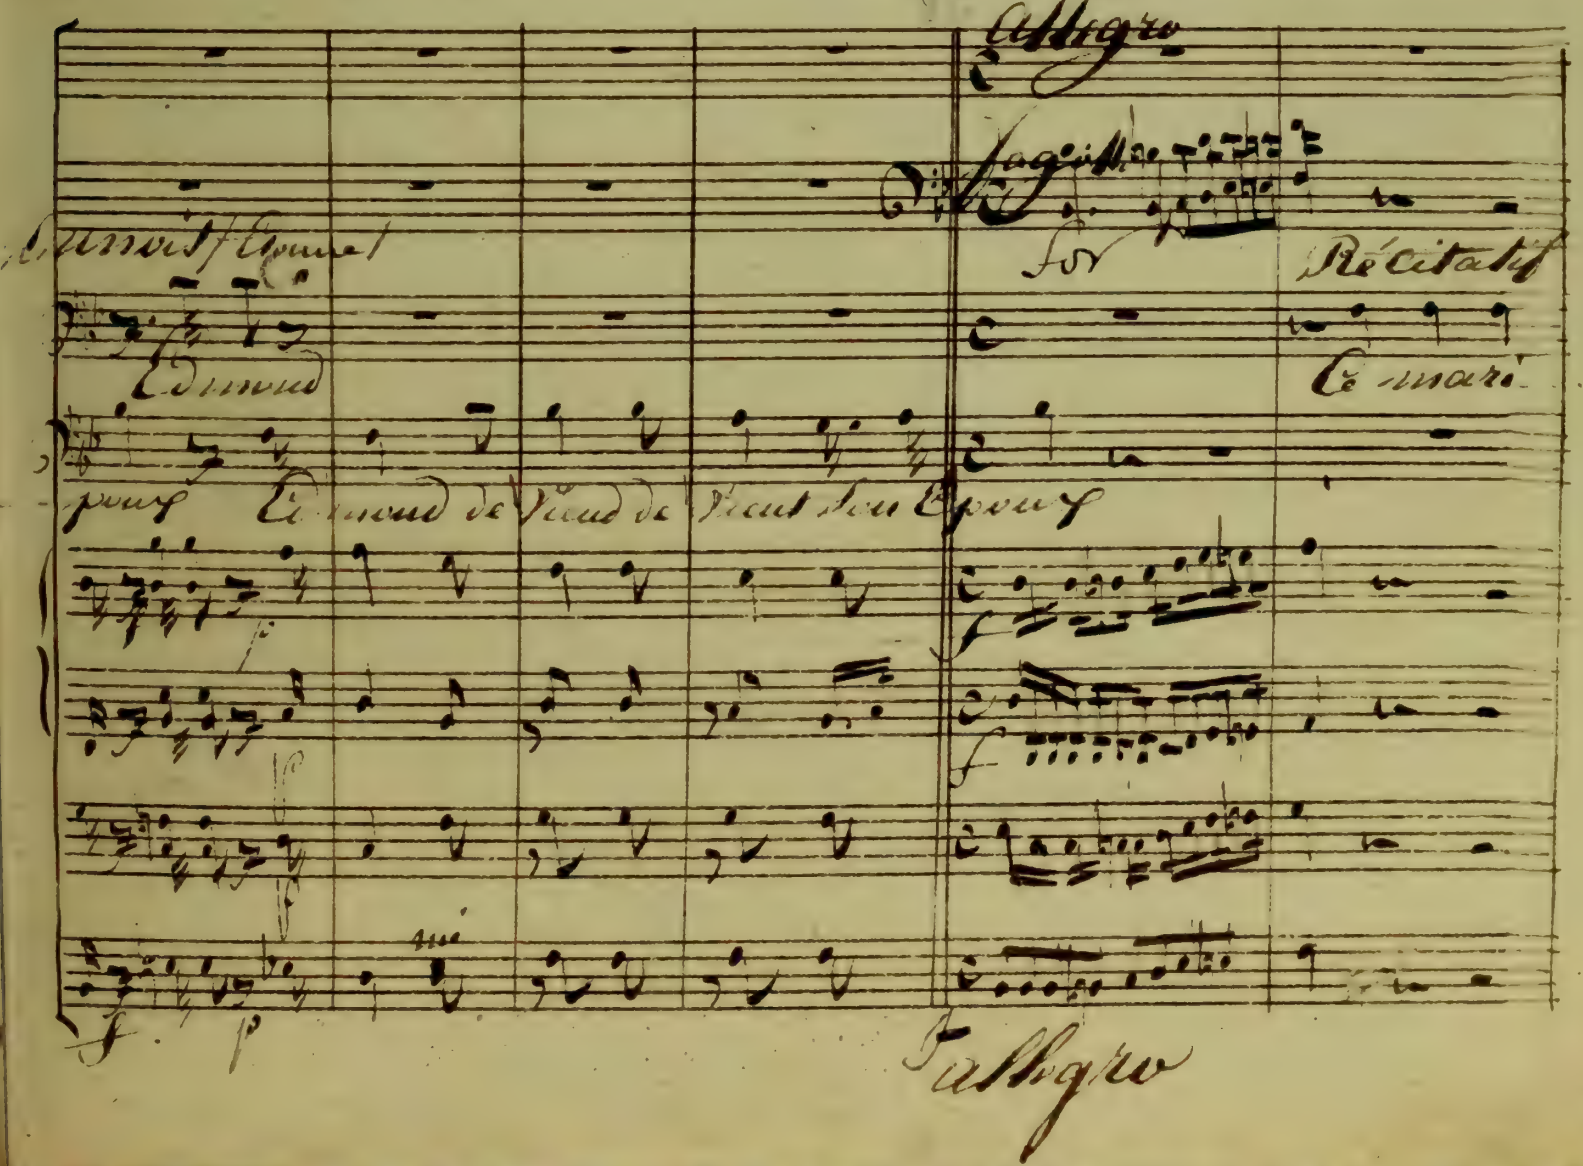 Allegro
fagotti
for Récitatif
Edmond
Ce mari
poux Edmond devient devient son Epoux
f
p
f
mi
f p
allegro